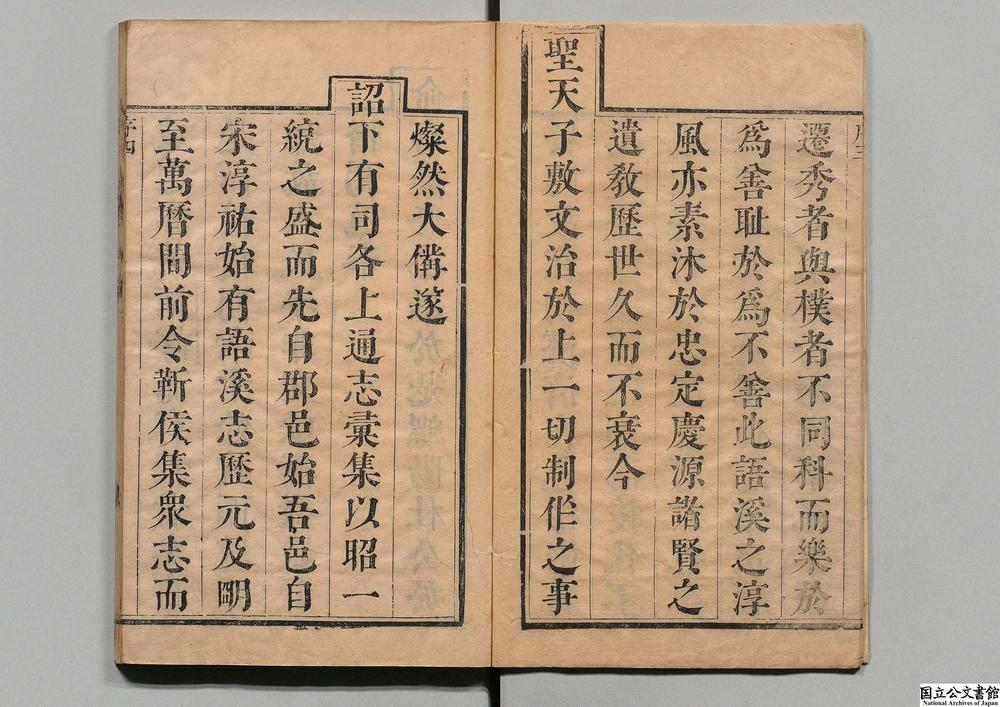 遷秀者與樸者不同科而樂於
為善恥於為不善此語溪之淳
風亦素沐於忠定慶源諸賢之
遺教歷世久而不衰今
聖天子敷文治於上一切制作之事
燦然大備遂
詔下有司各上通志彙集以昭一
統之盛而先自郡邑始吾邑自
宋淳祐始有語溪志歷元及明
至萬曆間前令靳侯集衆志而
序四
国立公文書館
National Archives of Japan